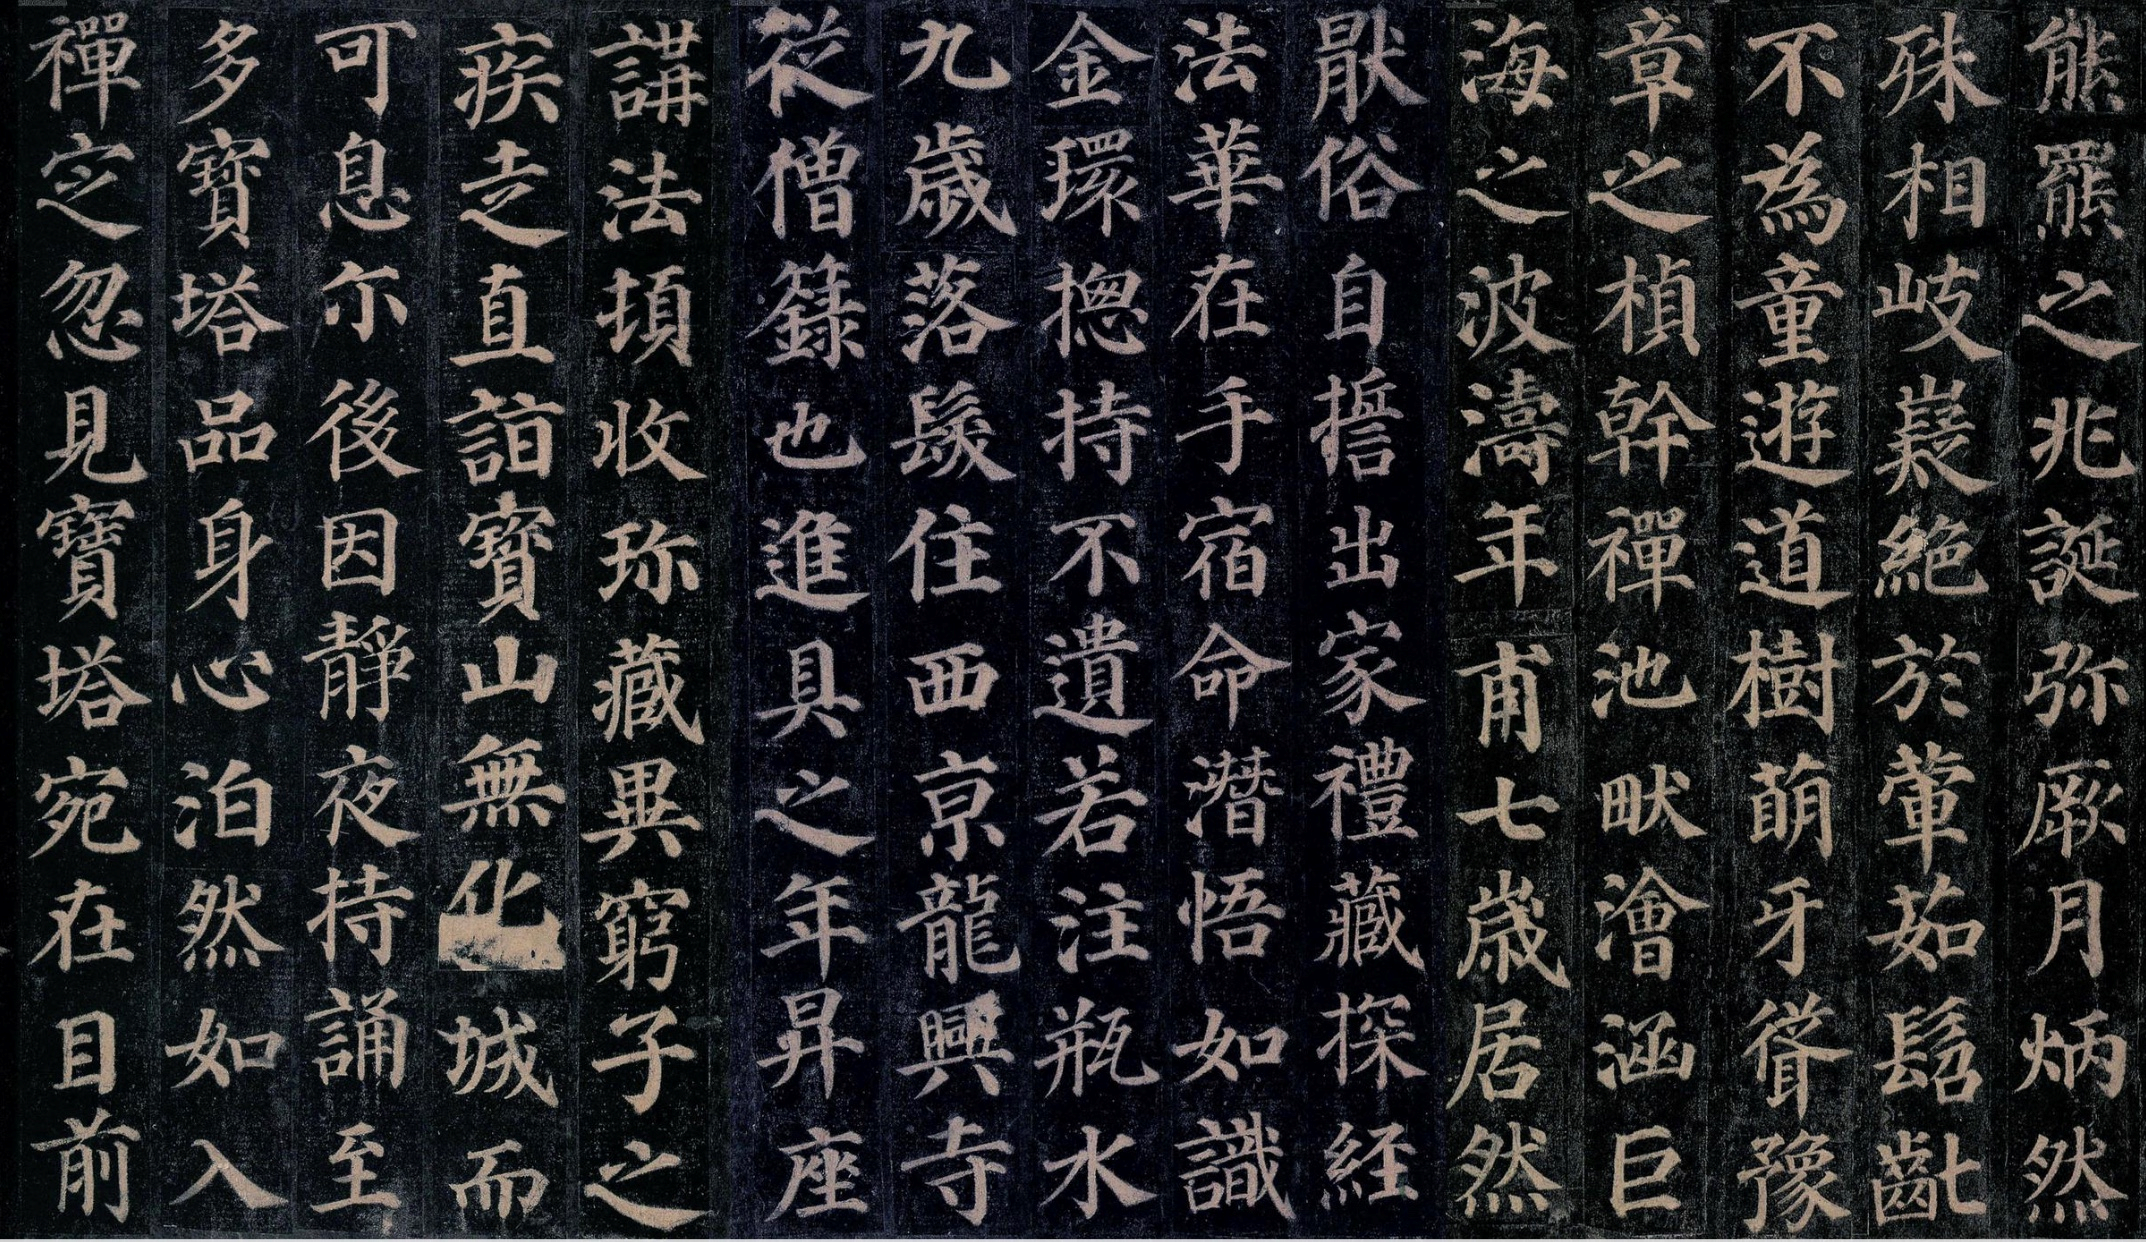 熊羆之兆誕弥厥月炳然
殊相岐嶷絶於葷茹髫齔
不為童遊道樹萌牙聳豫
章之楨幹禪池畎澮涵巨
海之波濤年甫七歲居然
厭俗自誓出家禮藏探経
法華在手宿命潛悟如識
金環揔持不遺若注瓶水
九歲落髮住西京龍興寺
從僧籙也進具之年昇座
講法頓收珎藏異窮子之
疾走直詣寶山無化城而
可息尒後因靜夜持誦至
多寶塔品身心泊然如入
禪定忽見寶塔宛在目前